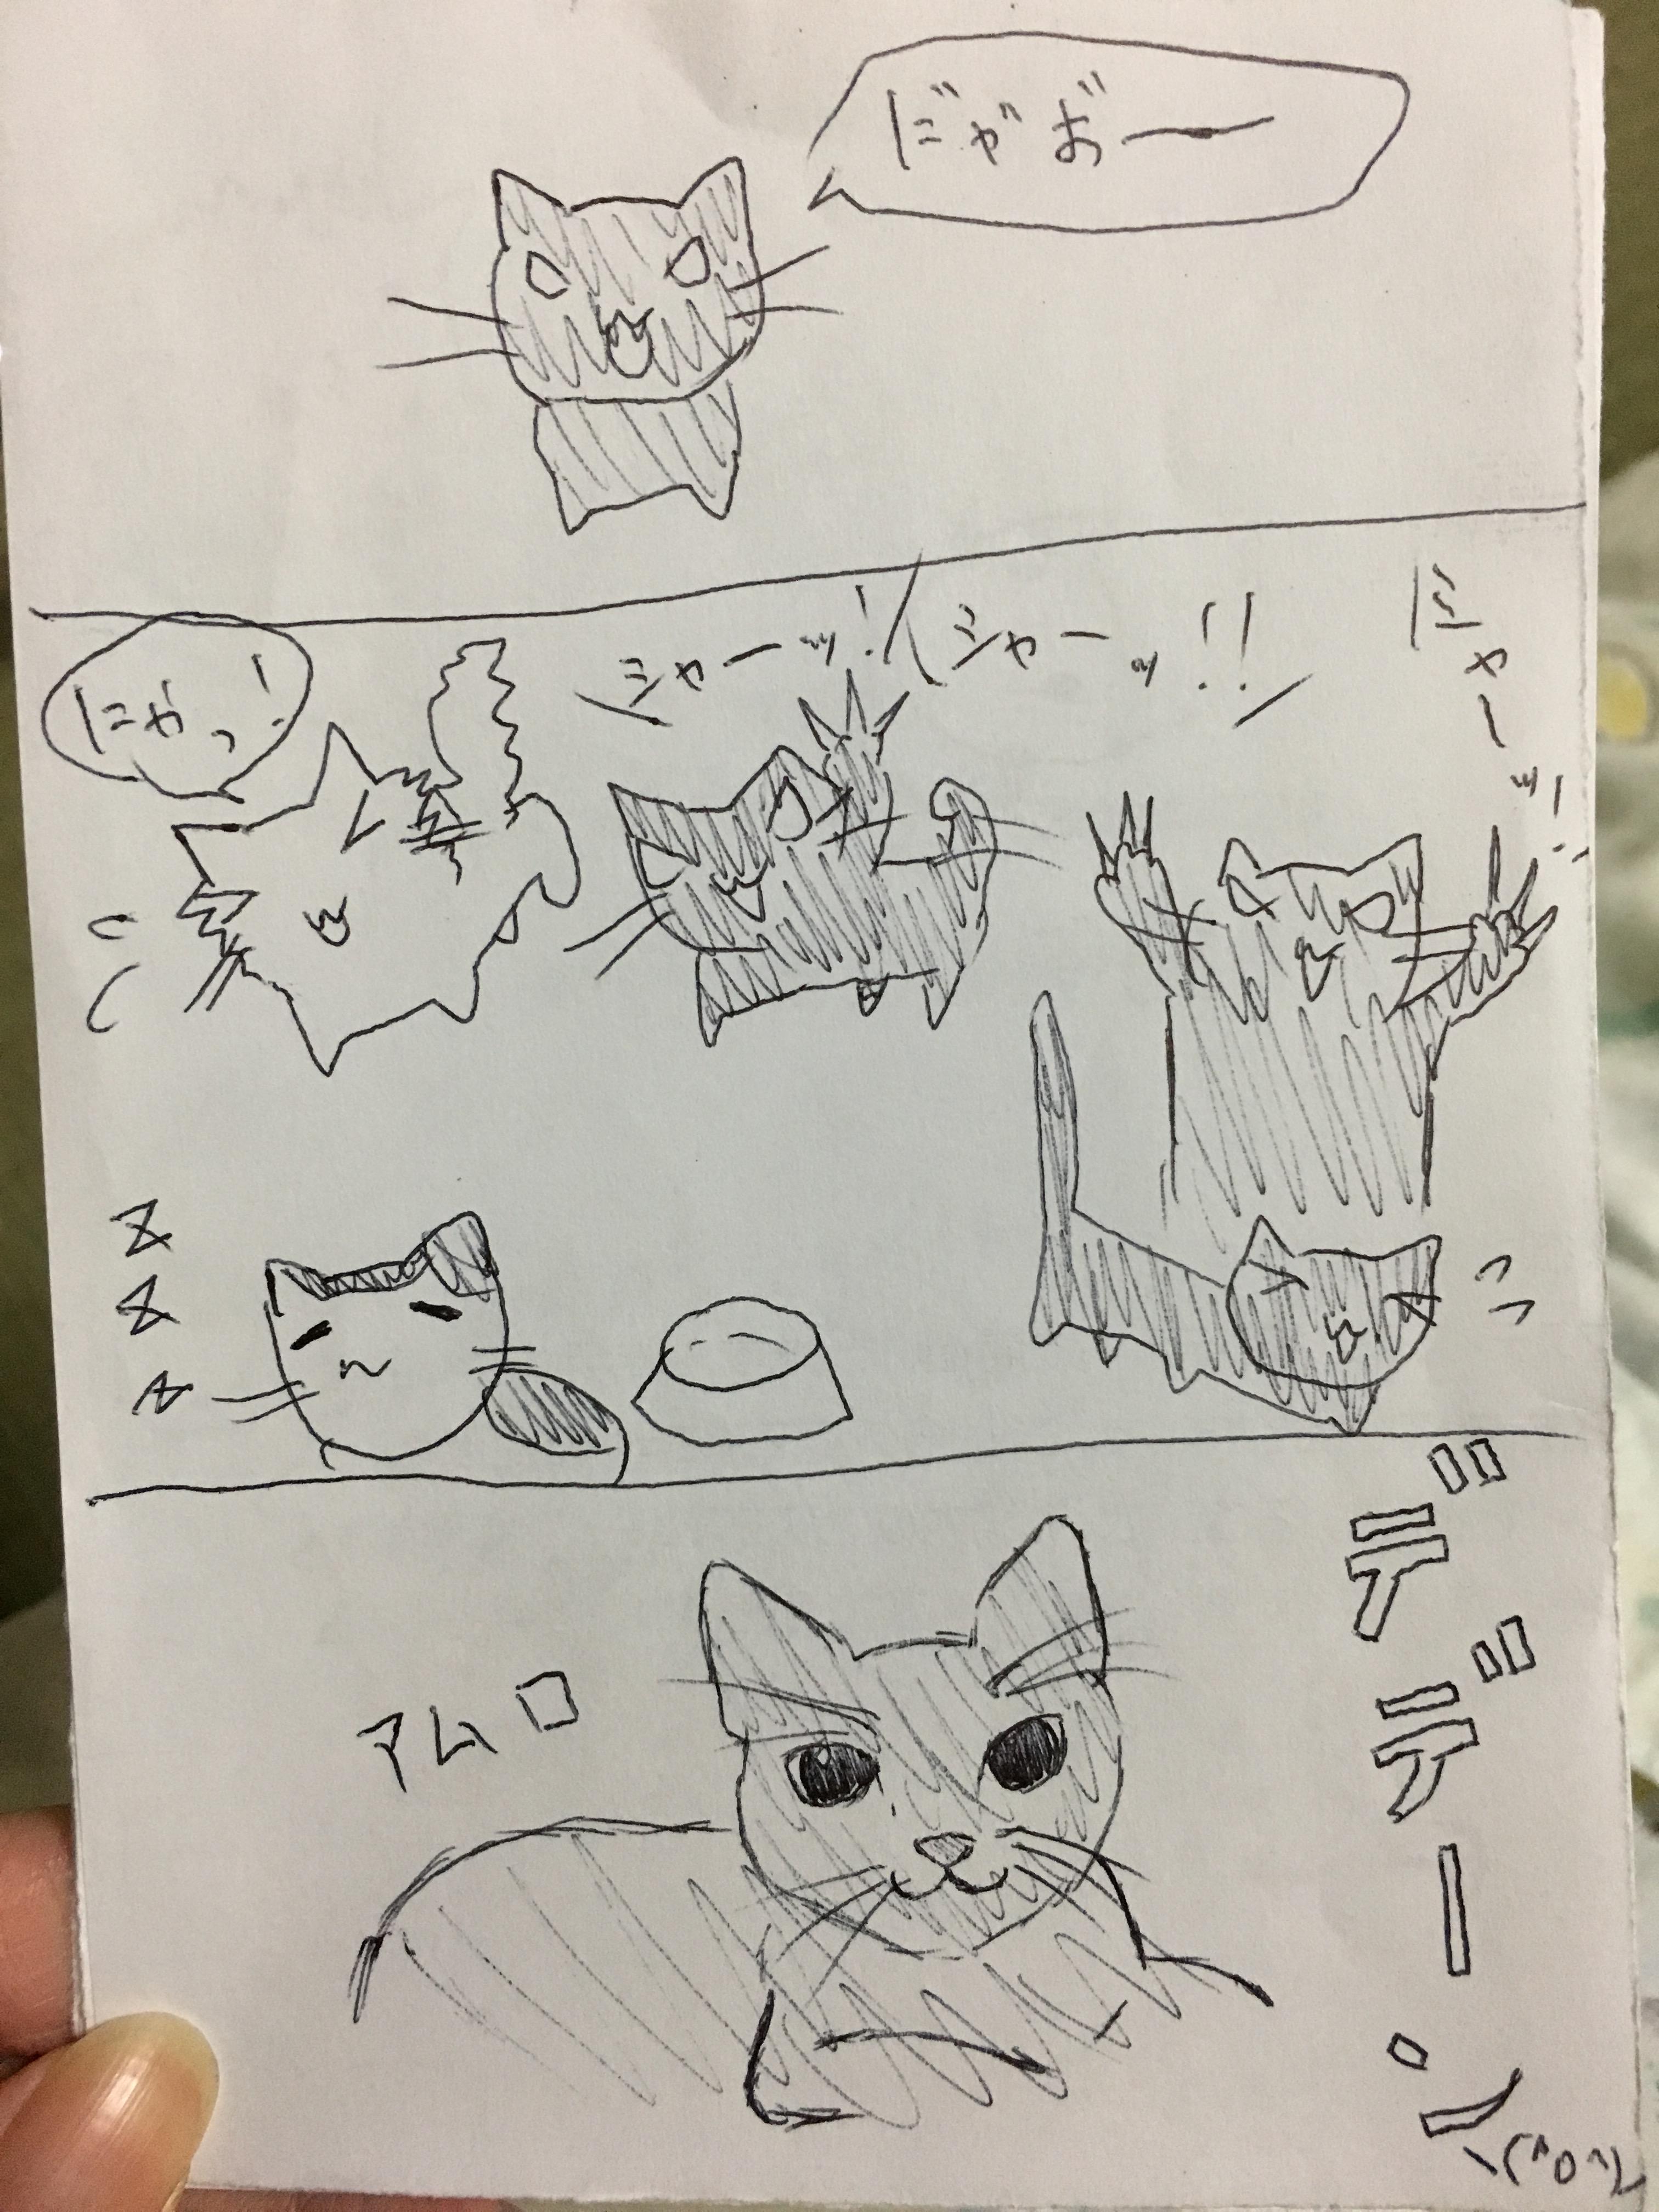 に゛ゃ゛お゛ー
にゃーッ!
シャーッ!!
シャーッ!
にゃっ!
zzz
デデーン
アムロ
\(^o^)/